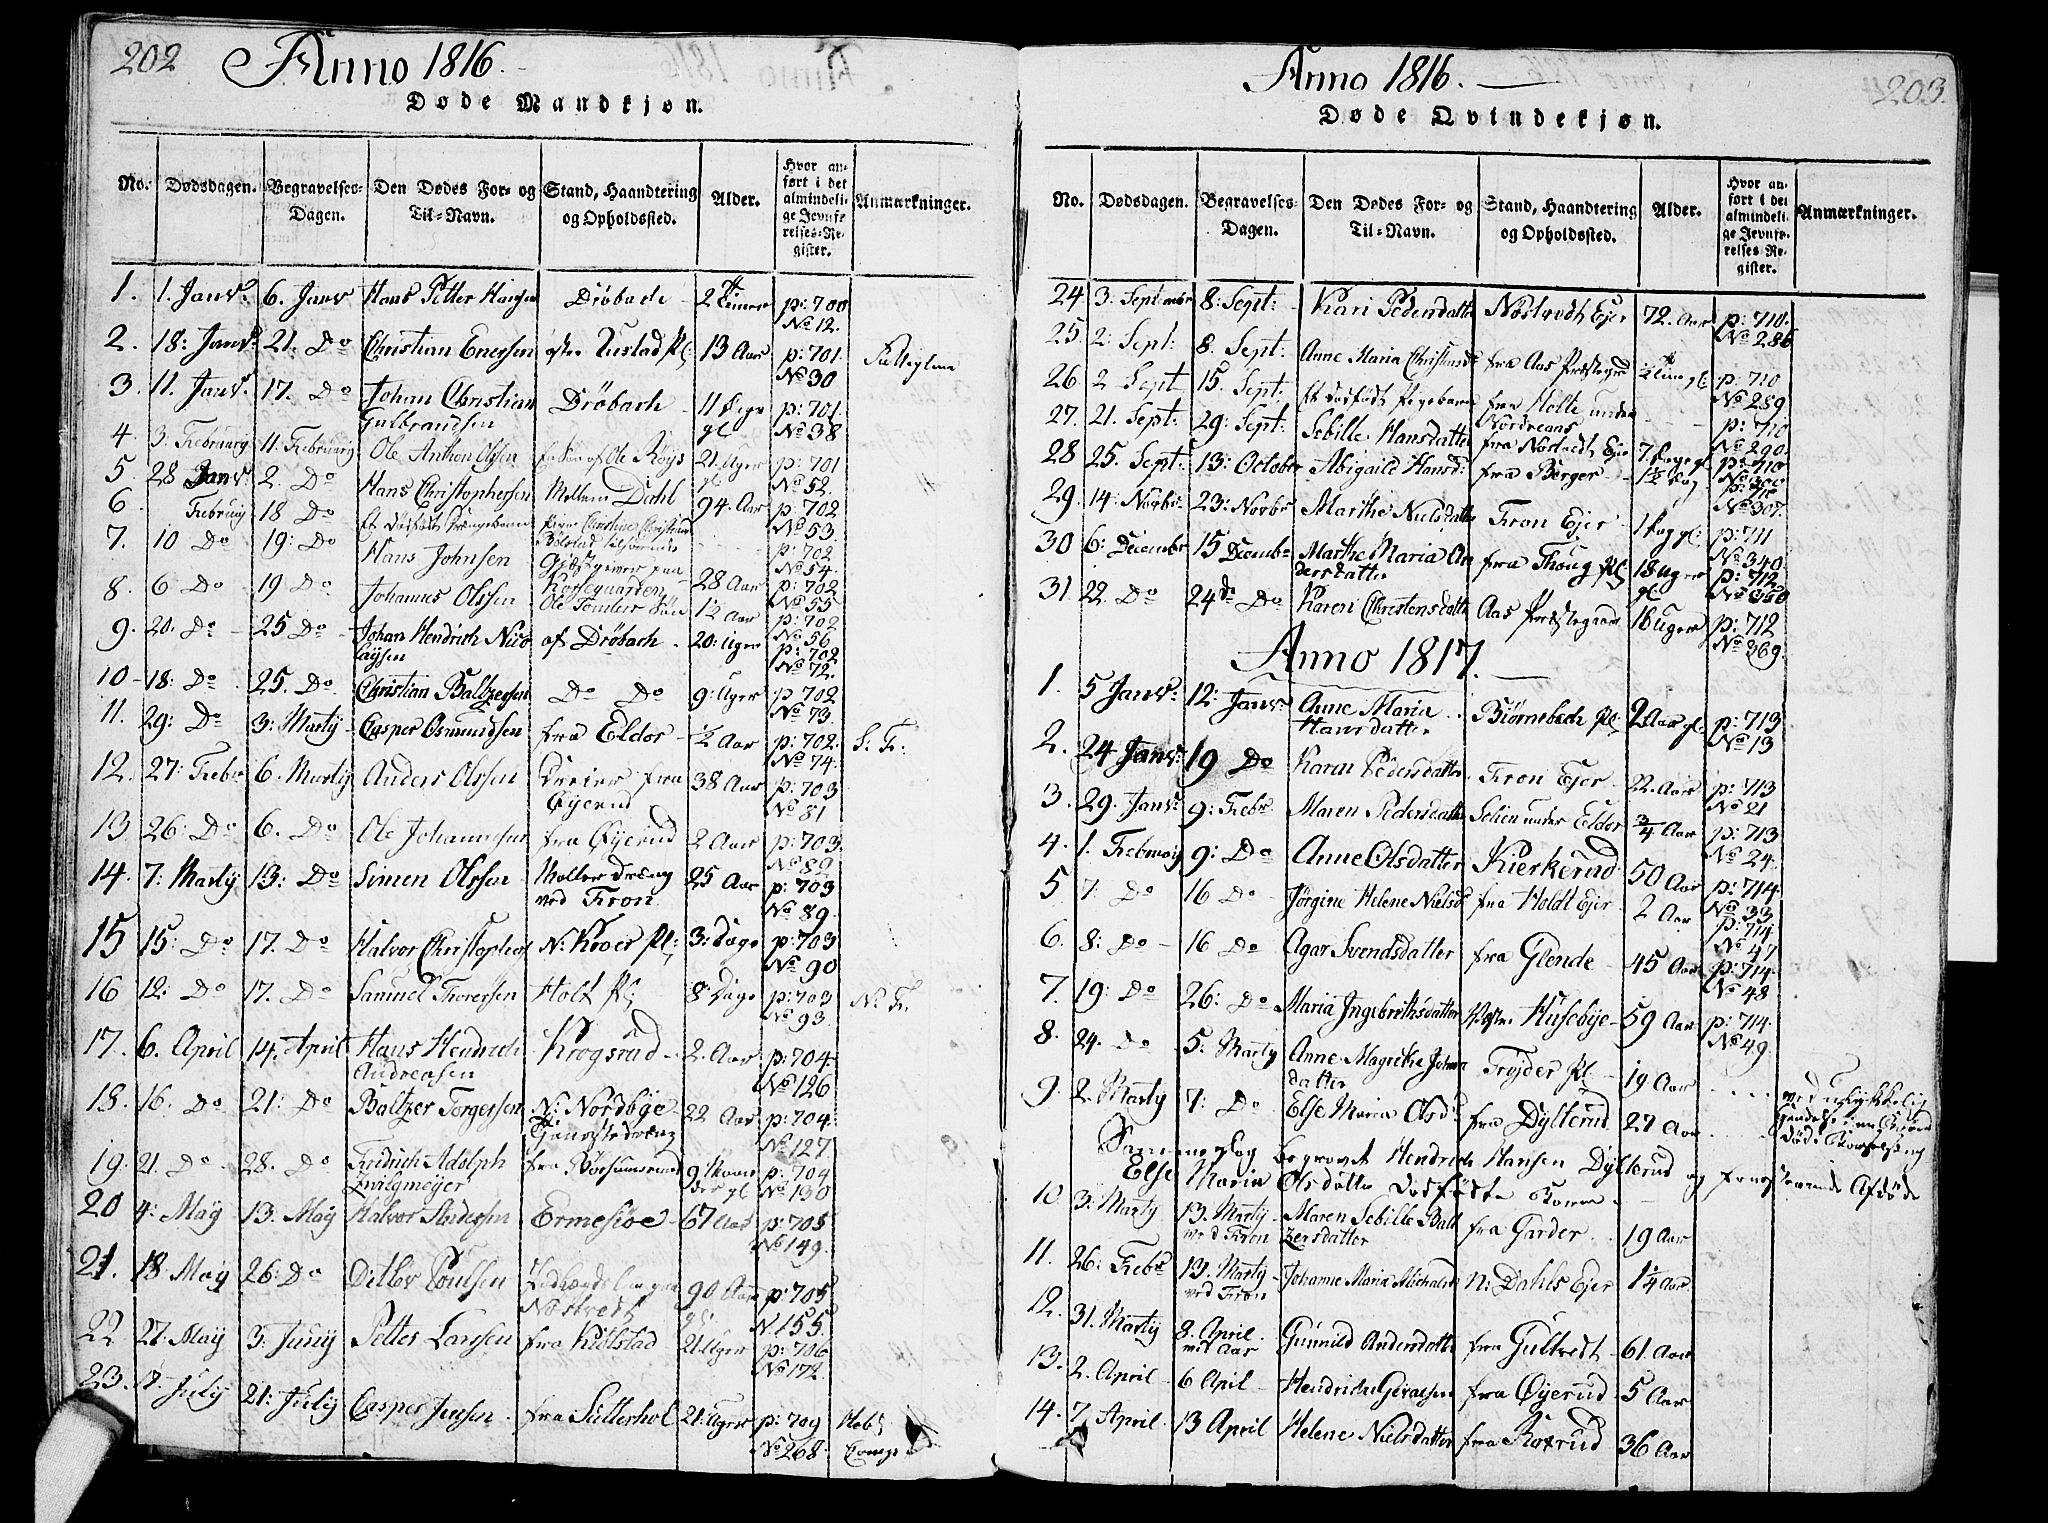 202
Anno 1816.
Døde Mandkjøn.
No. Dødsdagen. Begravelses-Dagen. Den Dødes For- og Til-Navn. Stand, Haandtering og Opholdssted. Alder. Hvor anført i det almindelige Jevnførelses-Register. Anmærkninger.
1. 1. Janv. 6. Janv Hans Petter Hansen Drøbach 2 Timer p: 700 No 12.
2. 18: Janv: 21. Do Christian Enersen Rustad Pl: 13 Aar p: 701. No 30
3. 11. Janv. 17. Do Johan Christian Gulbrandsen Drøbach 11 Dage gl p: 701. No 38
4. 3. Februarij 11. Februarij Ole Anthon Olsen Søn af Ole Røys 21. Uger gl p: 701 No 52.
5. 28 Janv: 2. Do Hans Christophersen Mellem Dahl 94. Aar p: 702 No 53.
6. Februarij 18 Do Et dødfødt Drengebarn p: 702 No 54.
7. 10 Do 19: Do Hans Johnsen Giæstgiver paa Korsegaarden 28 Aar p: 702 No 55
8. 6 Do 19 Do Johannes Olsen Ole Søn 1½ Aar p: 702 No 56
9. 20. Do 25 Do Johan Hendrich Nicolaysen af Drøbach 20: Uger p: 702 No 72.
10 18: Do 25. Do Christian Baltzersen Do Do 9: Uger p: 702 No 73.
11. 29: Do 3: Martij Casper Osmundsen fra Eldor ½ Aar p: 702. No 74. S. F.
12. 27: Febr 6. Martij Anders Olsen Dreier fra Øyerud 38 Aar p: 703 No 81
13. 26: Do 6. Do Ole Johannesen fra Øyerud 2 Aar p: 703. No 82
14. 7: Martij 13: Do Simen Olsen Møller Dreng ved Fron 25 Aar p: 703 No 89.
15 15: Do 17. Do Halvor Christopher N: Kroer Pl: 3: Dage p: 703 No 90
16 12: Do 17. Do Samuel Thoresen Holt Pl: 8: Dage p: 703 No 93. N. F.
17. 6. April 14. April Hans Hendrich Andreasen Krogsrud 2. Aar p: 704. No 126
18. 16. Do 21: Do Baltzer Torgersen N: Nordbye Tjenestedreng 22 Aar p: 704. No 127
19. 21. Do 28. Do Fridrich Adolph Zwilgmeyer fra 9 Maaneder gl p: 704 No 130
20 4: Maÿ 13. Maÿ Halvor Andersen Ermesiøe 67 Aar p: 705 No 149.
21. 18 Maÿ 26: Do Ditlev Poulsen Næstvedt 90 Aar gl. p: 705 N. 155.
22 27: Maÿ 3: Junij Petter Larsen fra Kiølstad 21. Uger p: 706 No 172
23. 7. Julij 21: Julij Casper Jensen fra Sutterhol 21: Uger p: 709 No 268.
Anno 1816.
203.
Døde Qvindekjøn.
No. Dødsdagen. Begravelses-Dagen. Den Dødes For- og Til-Navn. Stand, Haandtering og Opholdssted. Alder. Hvor anført i det almindelige Jevnførelses-Register. Anmærkninger.
24 3. September 8: Sept: Kari Pedersdatter Næstvedt Ejer 72. Aar p: 710. No 286
25. 2: Sept: 8. Sept: Anne Maria Christensd: fra Aas Præstegrd ½ Time gl p: 710 No 289
26. 2 Sept 15. Sept: Et dødfødt Pigebarn fra Holte under Nordreaas p: 710 No 290
27. 21. Sept: 29: Sept: Sebille Hansdatter fra Næstvedt Ejer 7. Dage gl p: 710 No 300
28 25. Sept: 13: October Abigaild Hansd: fra Berger 1½ Dag p: 710 No 307.
29. 14: Novbr 23: Novbr Marthe Nielsdatter Fron Ejer 1 Dag gl: p: 711 No 340
30 6: Decembr 15 Decembr Marthe Maria Andersdatter fra Thoug Pl: 18 Uger gl p: 712 No 350
31. 22. Do 24de Do Karen Christensdatter Aas Præstegaard 16 Uger p: 712 No 369.
Anno 1817.
1. 5 Janv: 12: Janv: Anne Maria Hansdatter Biørnebech Pl: 2 Aar gl. p: 713 No 13
2. 24 Janv: 19 Do Karen Pedersdatter Fron Ejer 22. Aar p: 713 No 21
3. 29. Janv: 9: Febr. Maren Pedersdatter Solien under Eldor ¾ Aar p: 713 No 24.
4. 1. Februarij 9: Do Anne Olsdatter Kierkerud 50 Aar p: 714 No 33
5 7: Do 16 Do Jørgine Helene Nielsd fra Holdt Ejer 2 Aar p: 714. No 47
6. 8: Do 16 Do Agar Svendsdatter fra Glende 45 Aar p: 714. No 48
7. 19: Do 26: Do Maria Ingebrethsdatter Husebije 59 Aar p: 714. No 49.
8. 24. Do 5: Martij Anne Magrethe Johnsdatter Frøjder Pl 19 Aar
9. 2. Martij 7: Do Else Maria Olsd: fra Dyllerud 27 Aar ved ulykkelig hendelse i en Brønd død
Samme Dag begravet Hendrich Hansen Dyllerud og forestaaende Afdøde
Else Maria Olsdatters dødfødte Barn
10. 3: Martij 13. Martij ved Fron Maren Sebille Baltzersdatter fra Garder 19 Aar
11. 26: Febr. 13. Martij ved Fron Johanne Maria Michelsd N: Dahls Ejer 1¼ Aar
12. 31. Martij 8. April ved Aas Gunnild Andersdatter fra Gultvedt 61. Aar
13. 2. April 6 Apil Hendrik fra Øyerud 5 Aar
14. 7. April. 13 April Helene Nielsdatter fra Roxrud 36 Aar